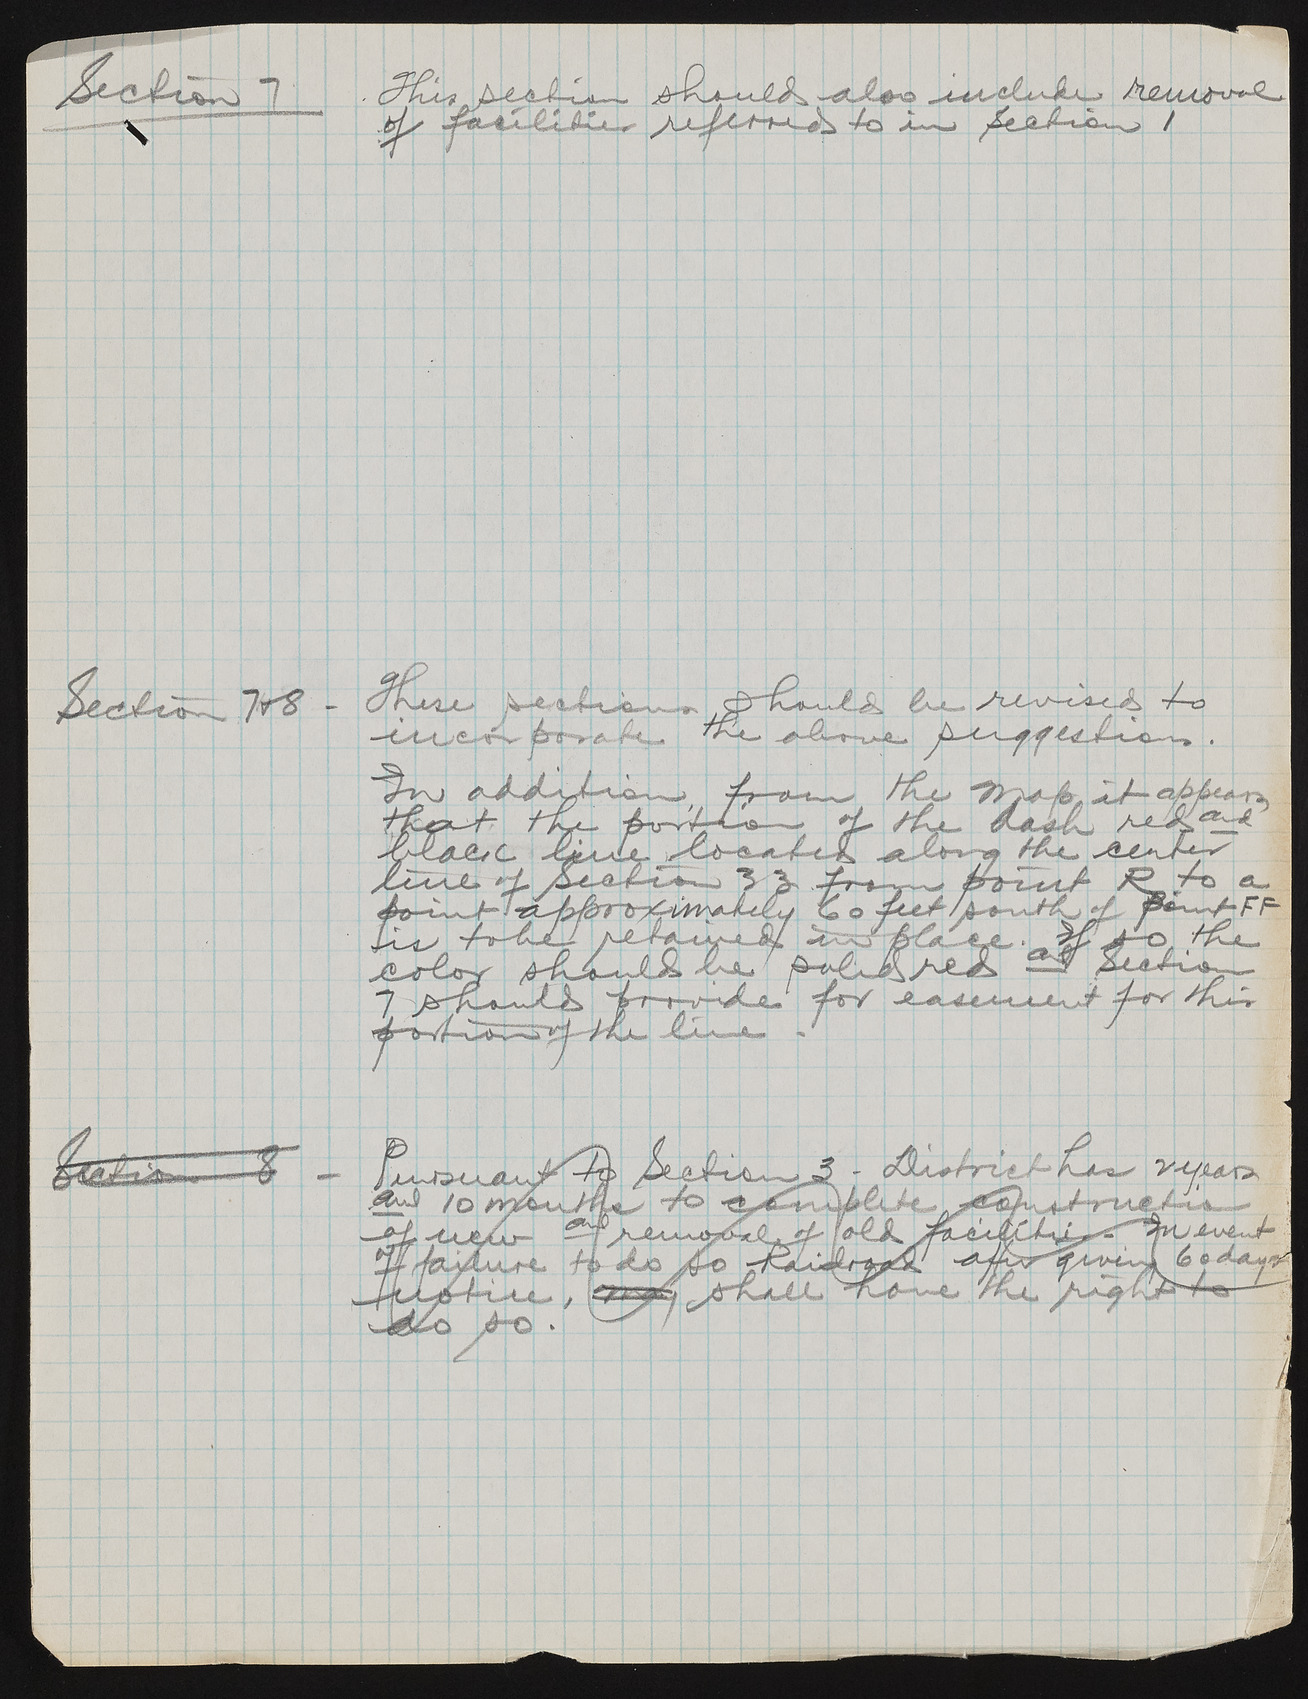 Section 7 This section should also include removal
of facilities referred to in Section 1
Section 7+8 - These sections should be revised to
incorporate the above suggestions.
In addition, from the map it appears
that the portion of the dash red and
black line located along the center
line of Section 33 from point R to a
point approximately 60 feet south of point FF
is to be retained in place. If so the
color should be solid red and Section
7 should provide for easement for this
portion of the line.
Section 8 - Pursuant to Section 3 - District has 2 years
and 10 months to complete constructio
of new and removal of old facilities. In event
of failure to do so Railroad after giving 60 days
notice, may, shall have the right to
do so.